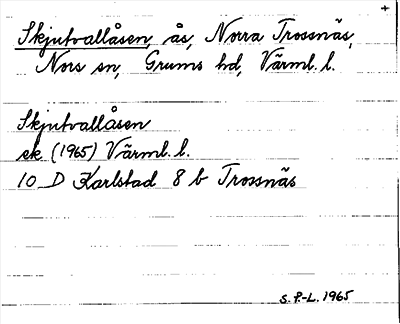 +
Skjutvallåsen, ås, Norra Trossnäs,
Nors sn, Grums hd, Värml. l.
Skjutvallåsen
ek (1965) Värml. l.
10 D Karlstad 8 b Trossnäs
S. F-L. 1965